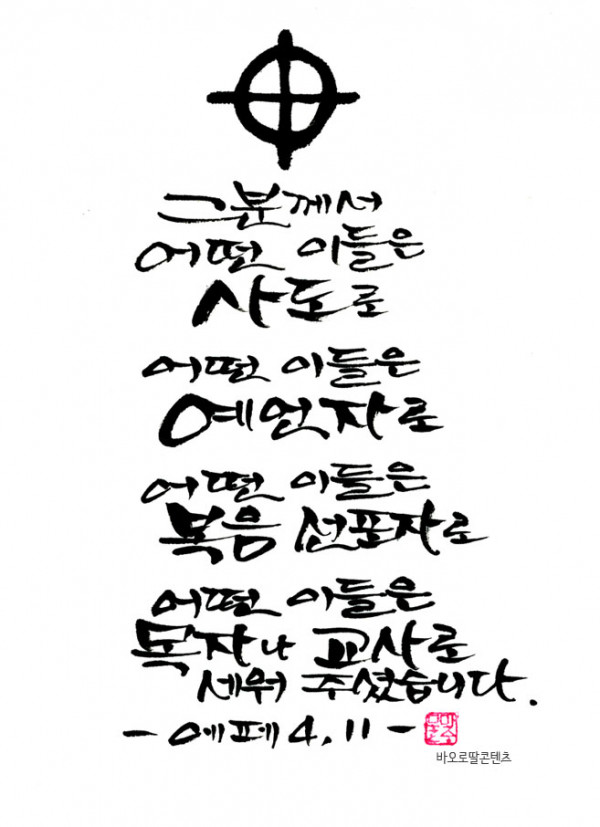 그분께서
어떤 이들은
사도로
어떤 이들은
예언자로
어떤 이들은
복음 선포자로
어떤 이들은
목자나 교사로
세워 주셨습니다.
- 에페 4, 11 -
바오로딸콘텐츠